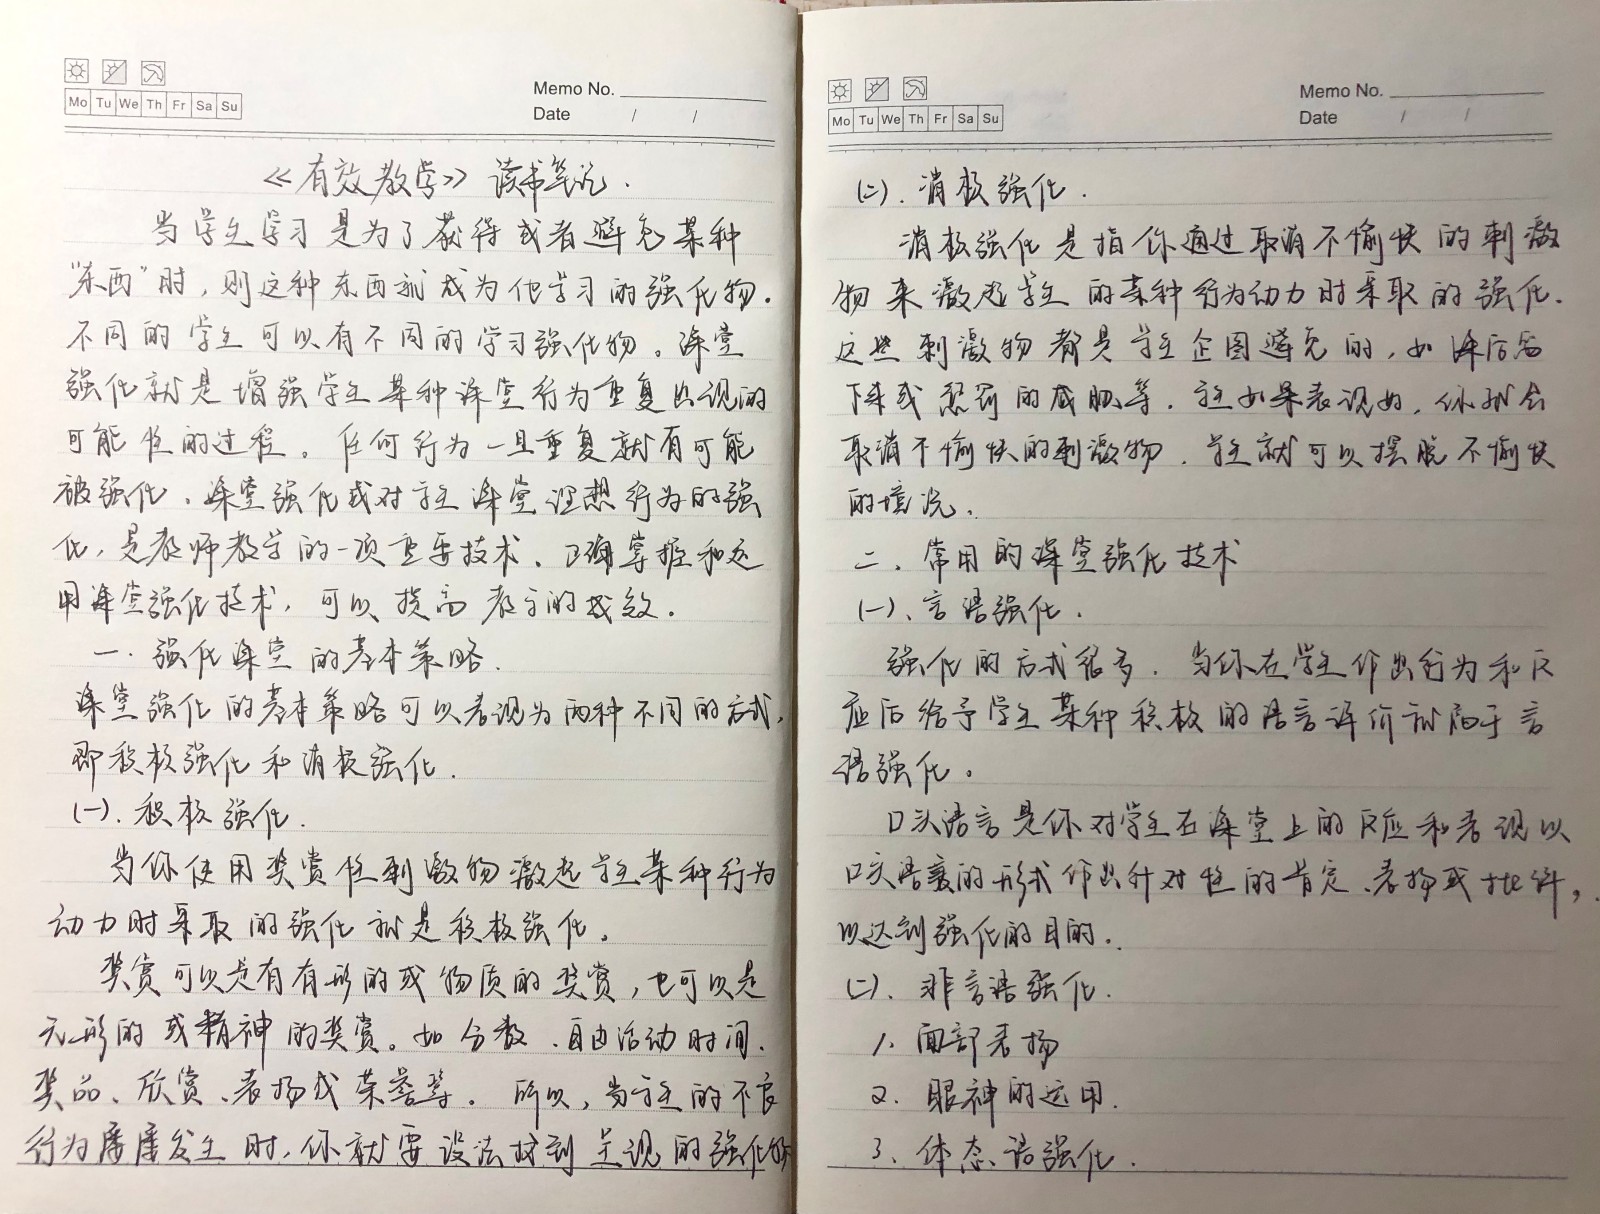 Mo Tu We Th Fr Sa Su
Memo No.
Date / /
《有效教学》读书笔记.
当学生学习是为了获得或者避免某种
“东西”时，则这种东西就成为他学习的强化物.
不同的学生可以有不同的学习强化物。课堂
强化就是增强学生某种课堂行为重复出现的
可能性的过程。任何行为一旦重复就有可能
被强化.课堂强化或对学生课堂理想行为的强
化,是教师教学的一项重要技术.正确掌握和运
用课堂强化技术,可以提高教学的成效.
一.强化课堂的基本策略.
课堂强化的基本策略可以表现为两种不同的方式,
即积极强化和消极强化.
(一).积极强化.
当你使用奖赏性刺激物激起学生某种行为
动力时采取的强化就是积极强化。
奖赏可以是有有形的或物质的奖赏,也可以是
无形的或精神的奖赏。如分数、自由活动时间、
奖品、欣赏、表扬或荣誉等。所以,当学生的不良
行为屡屡发生时,你就要设法找到呈现的强化物
Mo Tu We Th Fr Sa Su
Memo No.
Date / /
(二).消极强化.
消极强化是指你通过取消不愉快的刺激
物来激起学生的某种行为动力时采取的强化.
这些刺激物都是学生企图避免的,如课后留
下来或惩罚的威胁等.学生如果表现好,你就会
取消不愉快的刺激物.学生就可以摆脱不愉快
的境况.
二.常用的课堂强化技术
(一)、言语强化.
强化的方式很多.当你在学生作出行为和反
应后给予学生某种积极的语言评价就属于言
语强化。
口头语言是你对学生在课堂上的反应和表现以
口头语言的形式作出针对性的肯定、表扬或批评,
以达到强化的目的.
(二).非言语强化.
1.面部表扬
2.眼神的运用.
3.体态语强化.